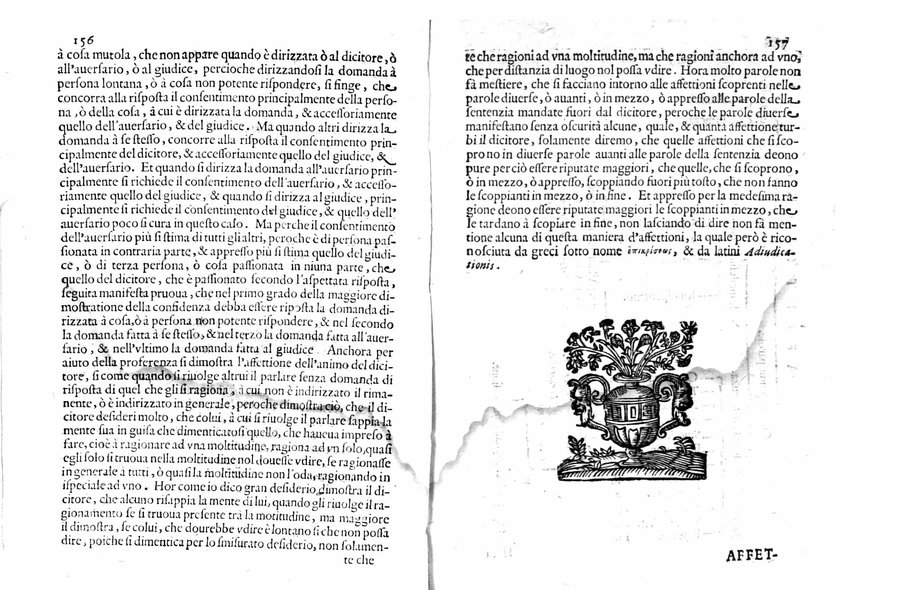 156
à cosa mutola, che non appare quando è dirizzata ò al dicitore, ò
all'auersario, ò al giudice, percioche dirizzandosi la domanda à
persona lontana, ò à cosa non potente rispondere, si finge, che
concorra alla risposta il consentimento principalmente della perso-
na, ò della cosa, à cui è dirizzata la domanda, & accessoriamente
quello dell'auersario, & del giudice. Ma quando altri dirizza la
domanda à se stesso, concorre alla risposta il consentimento prin-
cipalmente del dicitore, & accessoriamente quello del giudice, &
dell'auersario. Et quando si dirizza la domanda all'auersario prin-
cipalmente si richiede il consentimento dell'auersario, & accesso-
riamente quello del giudice, & quando si dirizza al giudice, prin-
cipalmente si richiede il consentimento del giudice, & quello dell'
auersario poco si cura in questo caso. Ma perche il consentimento
dell'auersario più si stima di tutti gli altri, peroche è di persona pas-
sionata in contraria parte, & appresso più si stima quello del giudi-
ce, ò di terza persona, ò cosa passionata in niuna parte, che
quello del dicitore, che è passionato secondo l'aspettata risposta,
seguita manifesta pruoua, che nel primo grado della maggiore di-
mostratione della confidenza debba essere riposta la domanda di-
rizzata à cosa, ò à persona non potente rispondere, & nel secondo
la domanda fatta à se stesso, & nel terzo la domanda fatta all'auer-
sario, & nell'vltimo la domanda fatta al giudice. Anchora per
aiuto della proferenza si dimostra l'affettione dell'animo del dici-
tore, si come quando si riuolge altrui il parlare senza domanda di
risposta di quel che gli si ragiona, à cui non è indirizzato il rima-
nente, ò è indirizzato in generale, peroche dimostra ciò, che il di-
citore desideri molto, che colui, à cui si riuolge il parlare sappia la
mente sua in guisa che dimenticatosi quello, che haueua impreso à
fare, cioè à ragionare ad vna moltitudine, ragiona ad vn solo, quasi
egli solo si truoua nella moltitudine nol douesse vdire, se ragionasse
in generale à tutti, ò quasi la moltitudine non l'oda, ragionando in
ispeciale ad vno. Hor come io dico gran desiderio dimostra il di-
citore, che alcuno risappia la mente di lui, quando gli riuolge il ra-
gionamento se si truoua presente trà la motitudine, ma maggiore
il dimostra, se colui, che dourebbe vdire è lontano sì che non possa
dire, poiche si dimentica per lo smisurato desiderio, non solamen-
te che
157
te che ragioni ad vna moltitudine, ma che ragioni anchora ad vno,
che per distanzia di luogo nol possa vdire. Hora molto parole non
fà mestiere, che si facciano intorno alle affettioni scoprenti nelle
parole diuerse, ò auanti, ò in mezzo, ò appresso alle parole della
sentenzia mandate fuori dal dicitore, peroche le parole diuerse
manifestano senza oscurità alcune, quale, & quanta affettione tur-
bi il dicitore, solamente diremo, che quelle affettioni che si sco-
prono in diuerse parole auanti alle parole della sentenzia deono
pure perciò essere riputate maggiori, che quelle, che si scoprono,
ò in mezzo, ò appresso, scoppiando fuori più tosto, che non fanno
le scoppianti in mezzo, ò in fine. Et appresso per la medesima ra-
gione deono essere riputate maggiori le scoppianti in mezzo, che
le tardano à scopiare in fine, non lasciando di dire non fà men-
tione alcuna di questa maniera d'affettioni, la quale però è rico-
nosciuta da greci sotto nome & da latini Adiudica-
tionis.
AFFET-